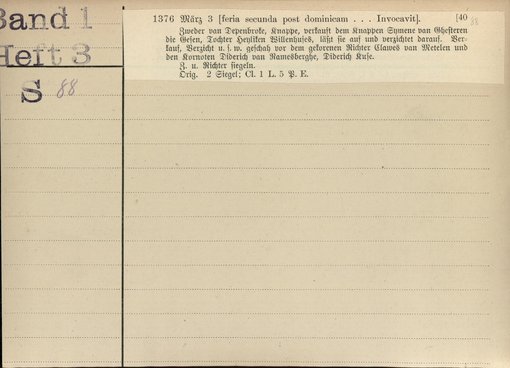 Band 1
Heft 3
S 88
1376 März 3 [feria secunda post dominicam . . . Invocavit]. [40
88
Zweder van Depenbroke, Knappe, verkauft dem Knappen Symene van Ghesteren
die Gesen, Tochter Heyliken Willenhuses, läßt sie auf und verzichtet darauf. Ver-
kauf, Verzicht u. s. w. geschah vor dem gekorenen Richter Clawes van Metelen und
den Kornoten Diderich van Ramesberghe, Diderich Kuse.
Z. u. Richter siegeln.
Orig. 2 Siegel; Cl. 1 L. 5 P. E.